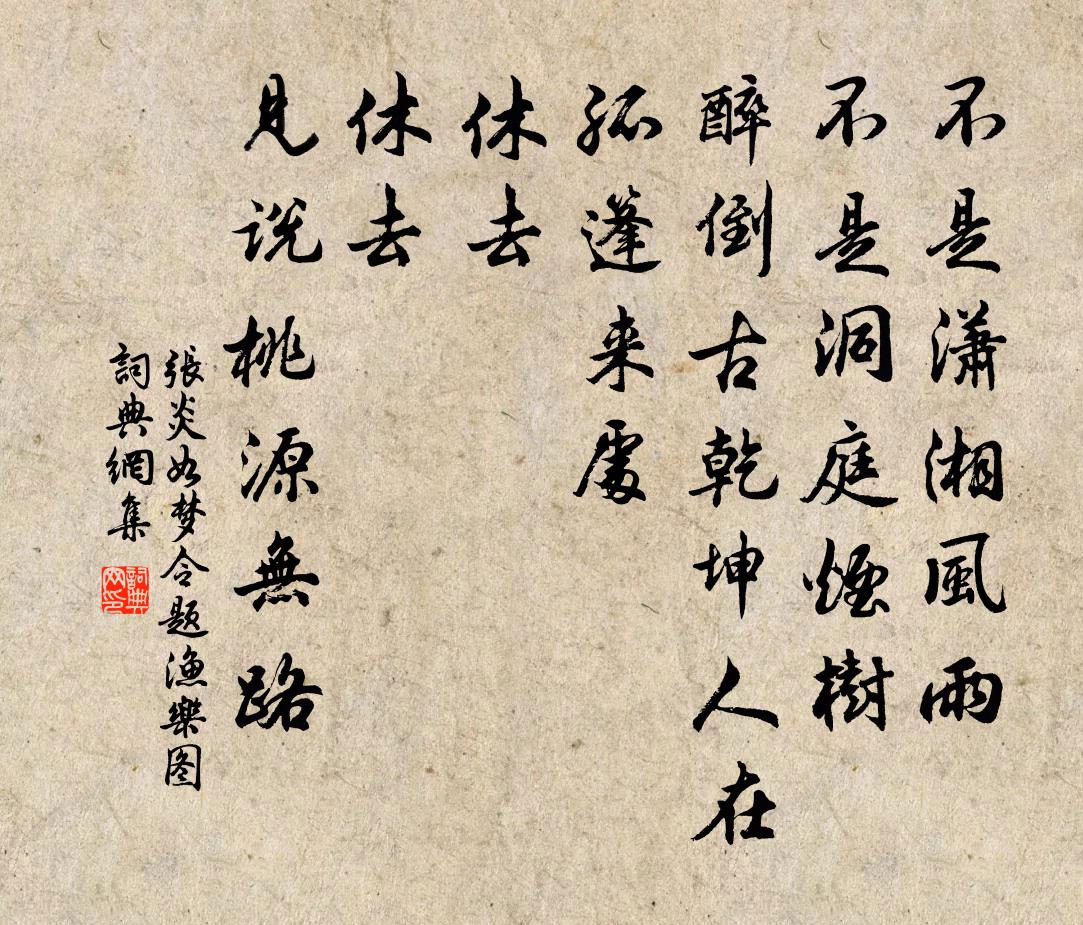 不是潇湘風雨
不是洞庭煙樹
醉倒古乾坤人在
孤篷来處
休去
休去
見说桃源無路
張炎如梦令题漁樂图
詞典網集
詞典
网印